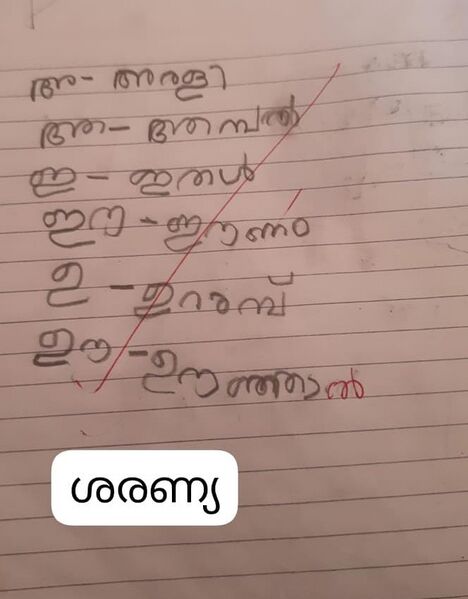 അ - അരളി
ആ - ആമ്പൽ
ഇ - ഇതൾ
ഈ - ഈണം
ഉ - ഉറുമ്പ്
ഊ - ഊഞ്ഞാൽ
ശരണ്യ